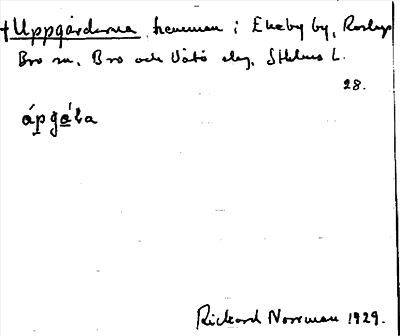 †Uppgårdarna, hemman i Ekeby by, Roslags
Bro sn, Bro och Vätö skg, Sthlms L.
28.
áp gå̀ɽa
Rickard Norrman 1929.